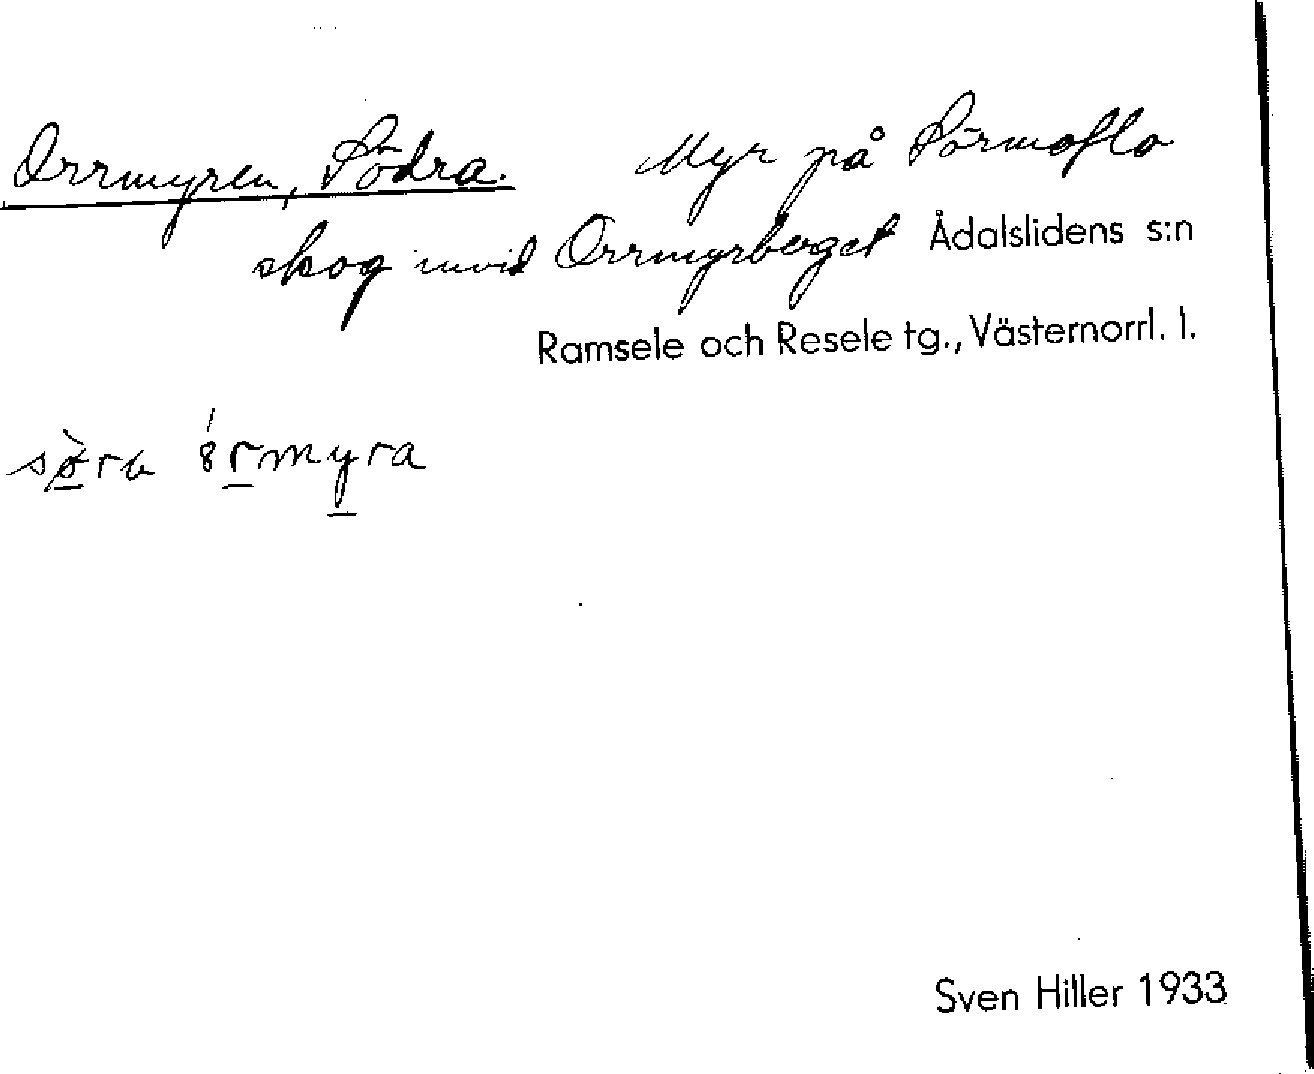 Orrmyren, Södra. Myr på Sörmoflo
skog invid Orrmyrberget Ådalslidens s:n
Ramsele och Resele tg., Västernorrl. l.
sø̀ra 8́rmyra
Sven Hiller 1933